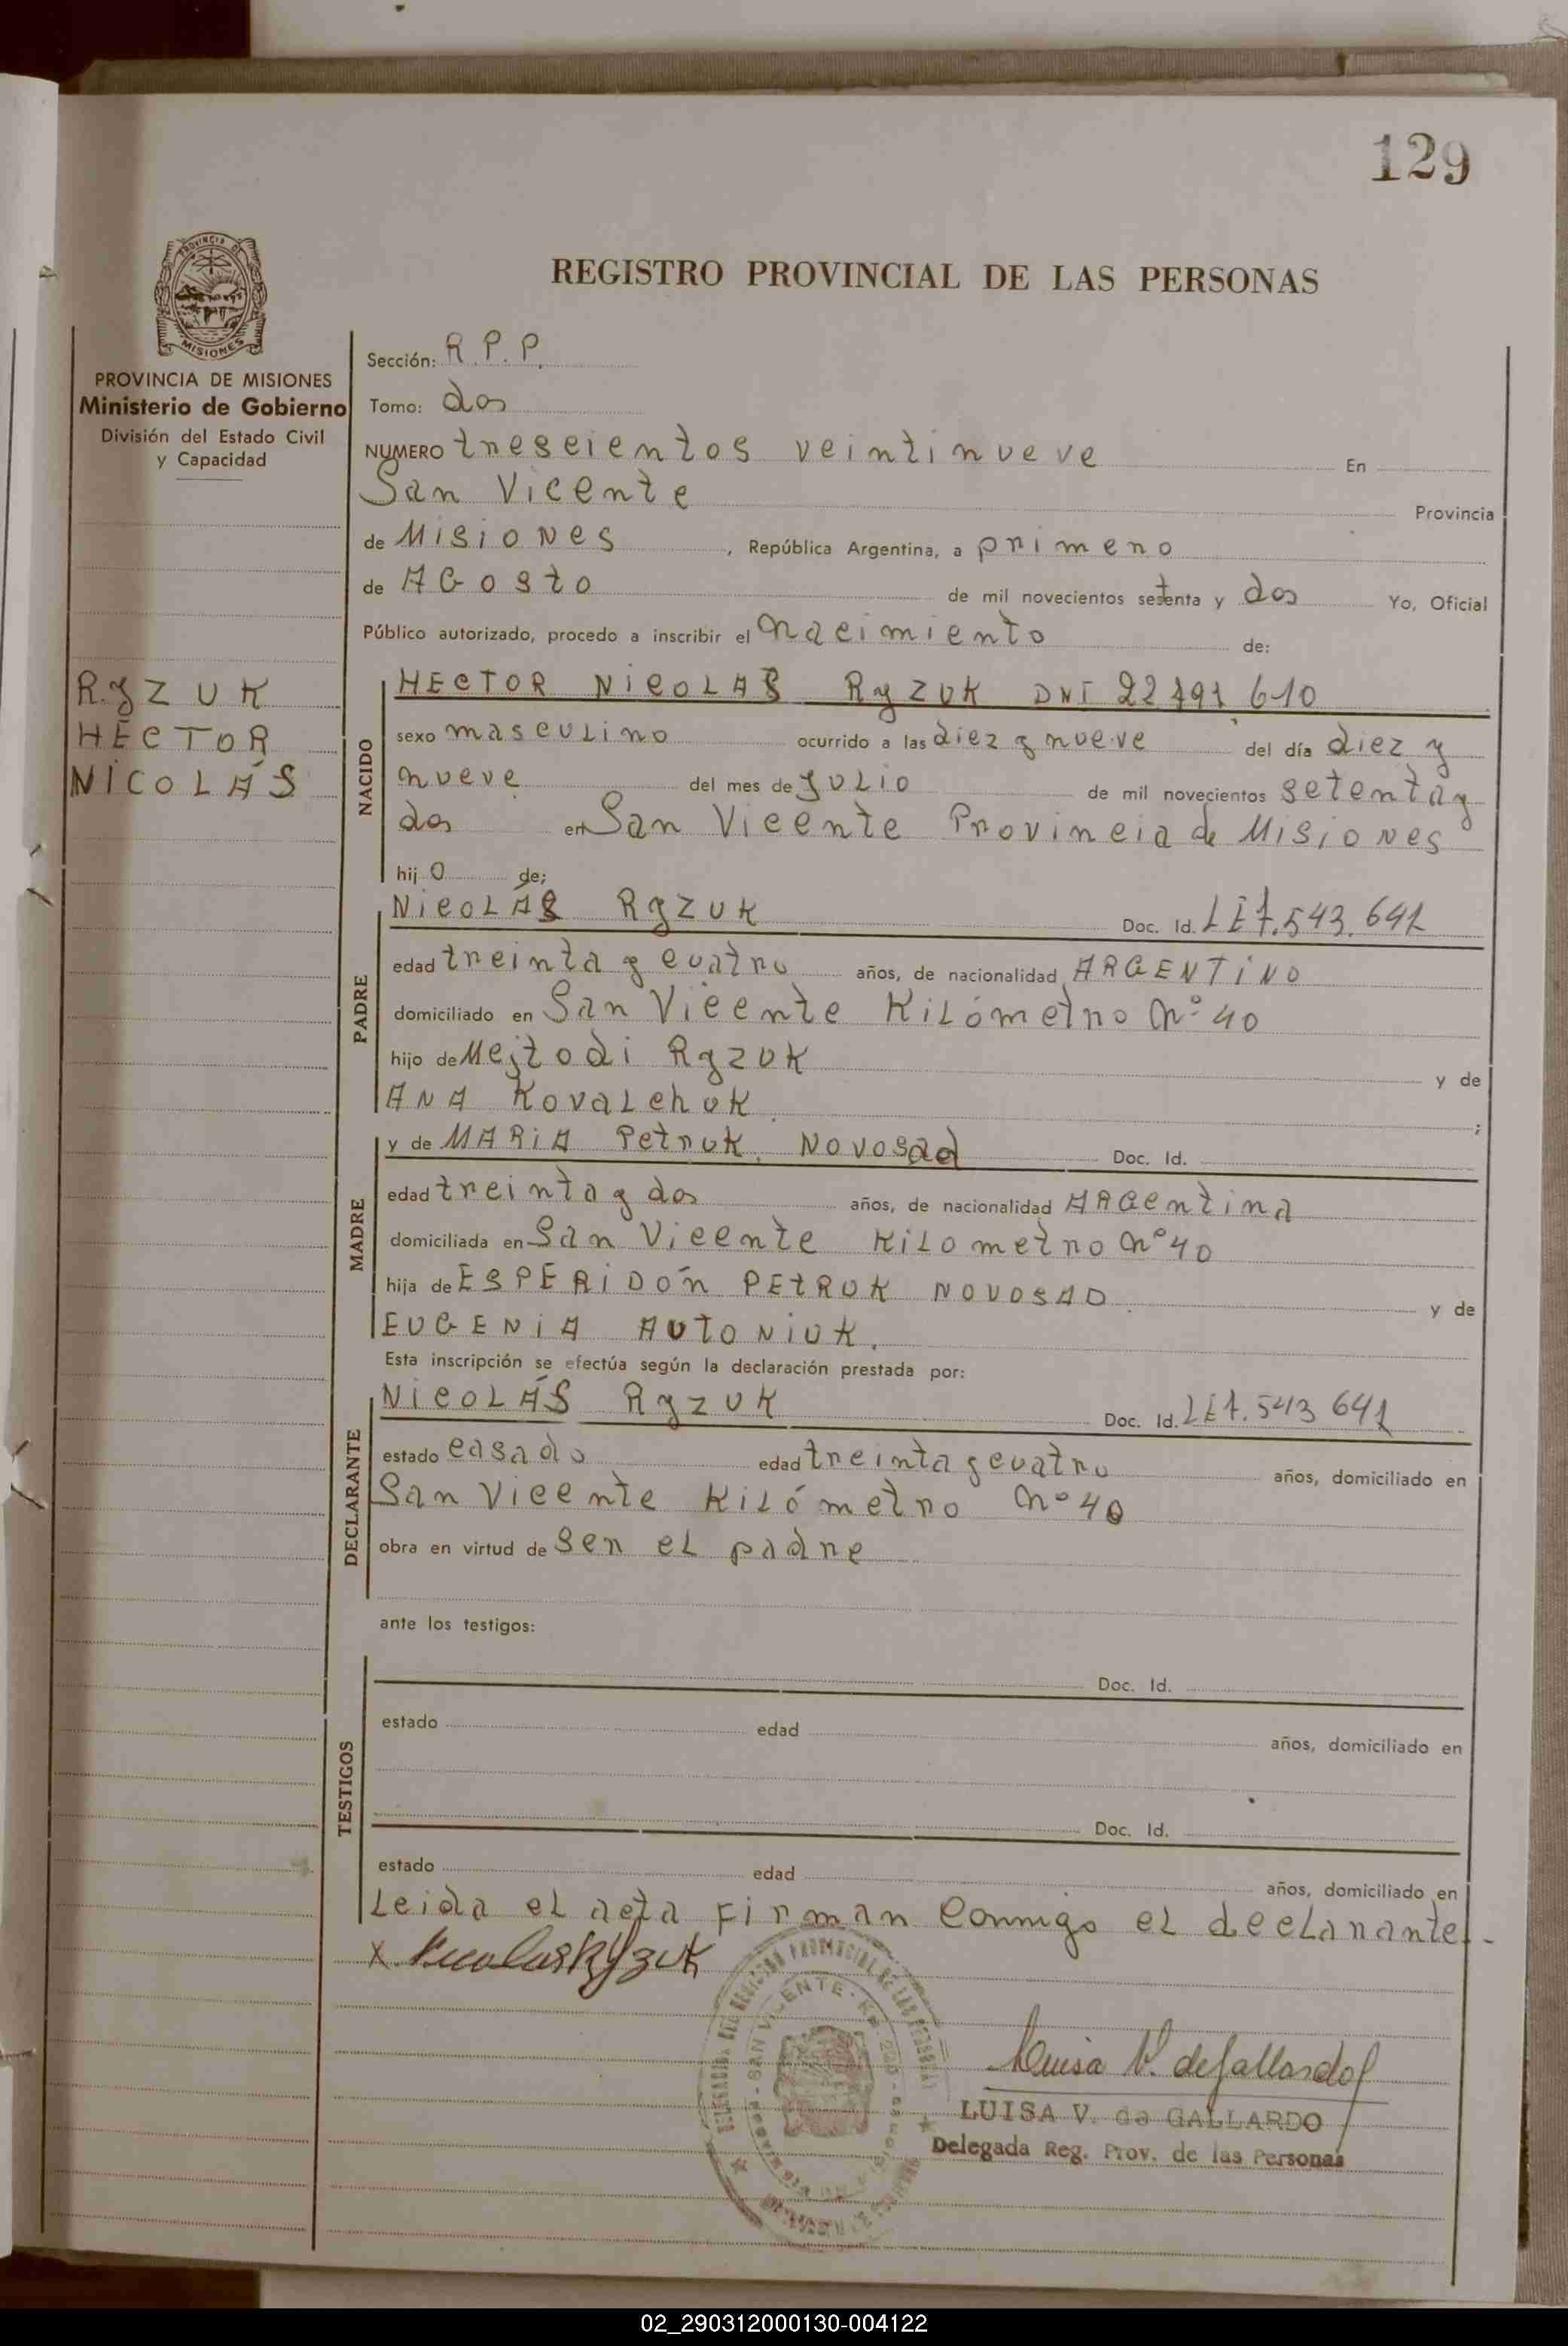 129
REGISTRO PROVINCIAL DE LAS PERSONAS
PROVINCIA DE MISIONES
Ministerio de Gobierno
División del Estado Civil
y Capacidad
RyZUK
HECTOR
NICOLÁS
Sección: R.P.P.
Tomo: dos
NUMERO trescientos veintinueve En
San Vicente Provincia
de Misiones, República Argentina, a primero
de AGosto de mil novecientos setenta y dos Yo, Oficial
Público autorizado, procedo a inscribir el nacimiento de:
NACIDO
HECTOR NICOLAS RyZUK DNI 22 491 610
sexo masculino ocurrido a las diez y nueve del día diez y
nueve del mes de julio de mil novecientos setenta y
dos en San Vicente Provincia de Misiones
hijo de;
PADRE
NicoLÁS RyZUK Doc. Id. LE 7.543.641
edad treinta y cuatro años, de nacionalidad ARGENTINO
domiciliado en San Vicente Kilómetro Nº 40
hijo de Mejtodi RyzUK y de
ANA KovaLchuK ;
MADRE
y de MARIA PetruK. Novosad Doc. Id.
edad treinta y dos años, de nacionalidad ARGentina
domiciliada en San Vicente Kilometro Nº 40
hija de ESPERIDÓN PETRUK NOVOSAD. y de
EUGENIA AUTONIUK.
Esta inscripción se efectúa según la declaración prestada por:
DECLARANTE
NicoLÁS RyzUK Doc. Id. LE 7.543 641
estado casado edad treinta y cuatro años, domiciliado en
San Vicente Kilómetro Nº 40
obra en virtud de ser el padre
ante los testigos:
TESTIGOS
Doc. Id.
estado edad años, domiciliado en
Doc. Id.
estado edad años, domiciliado en
Leida el acta Firman conmigo el declarante.-
X Nicolas Ryzuk
SAN VICENTE
Luisa V. de Gallardo
LUISA V. de GALLARDO
Delegada Reg. Prov. de las Personas
02_290312000130-004122